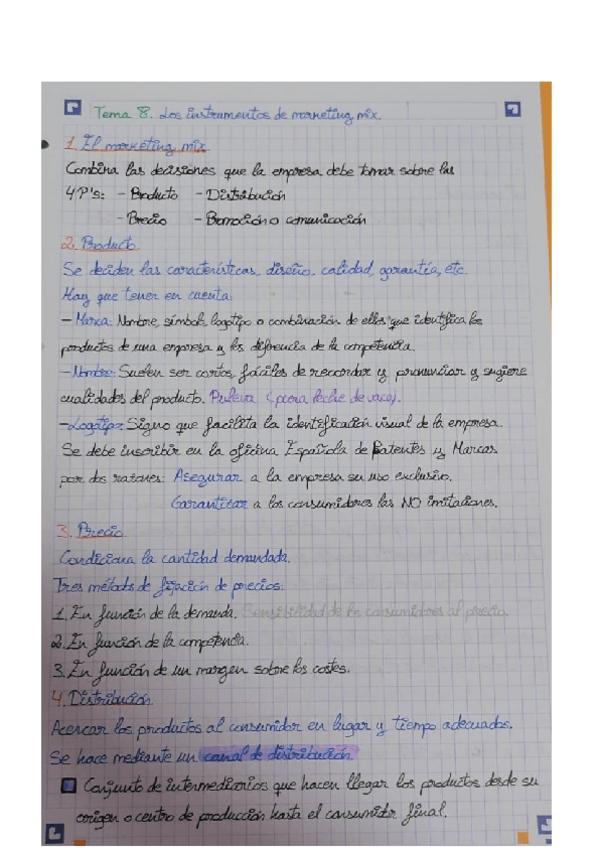 Tema 8. Los instrumentos de marketing mix.
1. El marketing mix
Combina las decisiones que la empresa debe tomar sobre las
4P's: - Producto - Distribución
- Precio - Promoción o comunicación
2. Producto
Se deciden las características, diseño, calidad, garantía, etc.
Hay que tener en cuenta:
- Marca: Nombre, símbolo, logotipo o combinación de ellos que identifica los
productos de una empresa y los diferencia de la competencia.
- Nombre: Suelen ser cortos, fáciles de recordar y pronunciar y sugiere
cualidades del producto. Puleva (pura leche de vaca).
- Logotipo: Signo que facilita la identificación visual de la empresa.
Se debe inscribir en la oficina Española de Patentes y Marcas
por dos razones: Asegurar a la empresa su uso exclusivo.
Garantizar a los consumidores las NO imitaciones.
3. Precio
Condiciona la cantidad demandada.
Tres métodos de fijación de precios:
1. En función de la demanda. Sensibilidad de los consumidores al precio.
2. En función de la competencia.
3. En función de un margen sobre los costes.
4. Distribución
Acercar los productos al consumidor en lugar y tiempo adecuados.
Se hace mediante un canal de distribución.
Conjunto de intermediarios que hacen llegar los productos desde su
origen o centro de producción hasta el consumidor final.